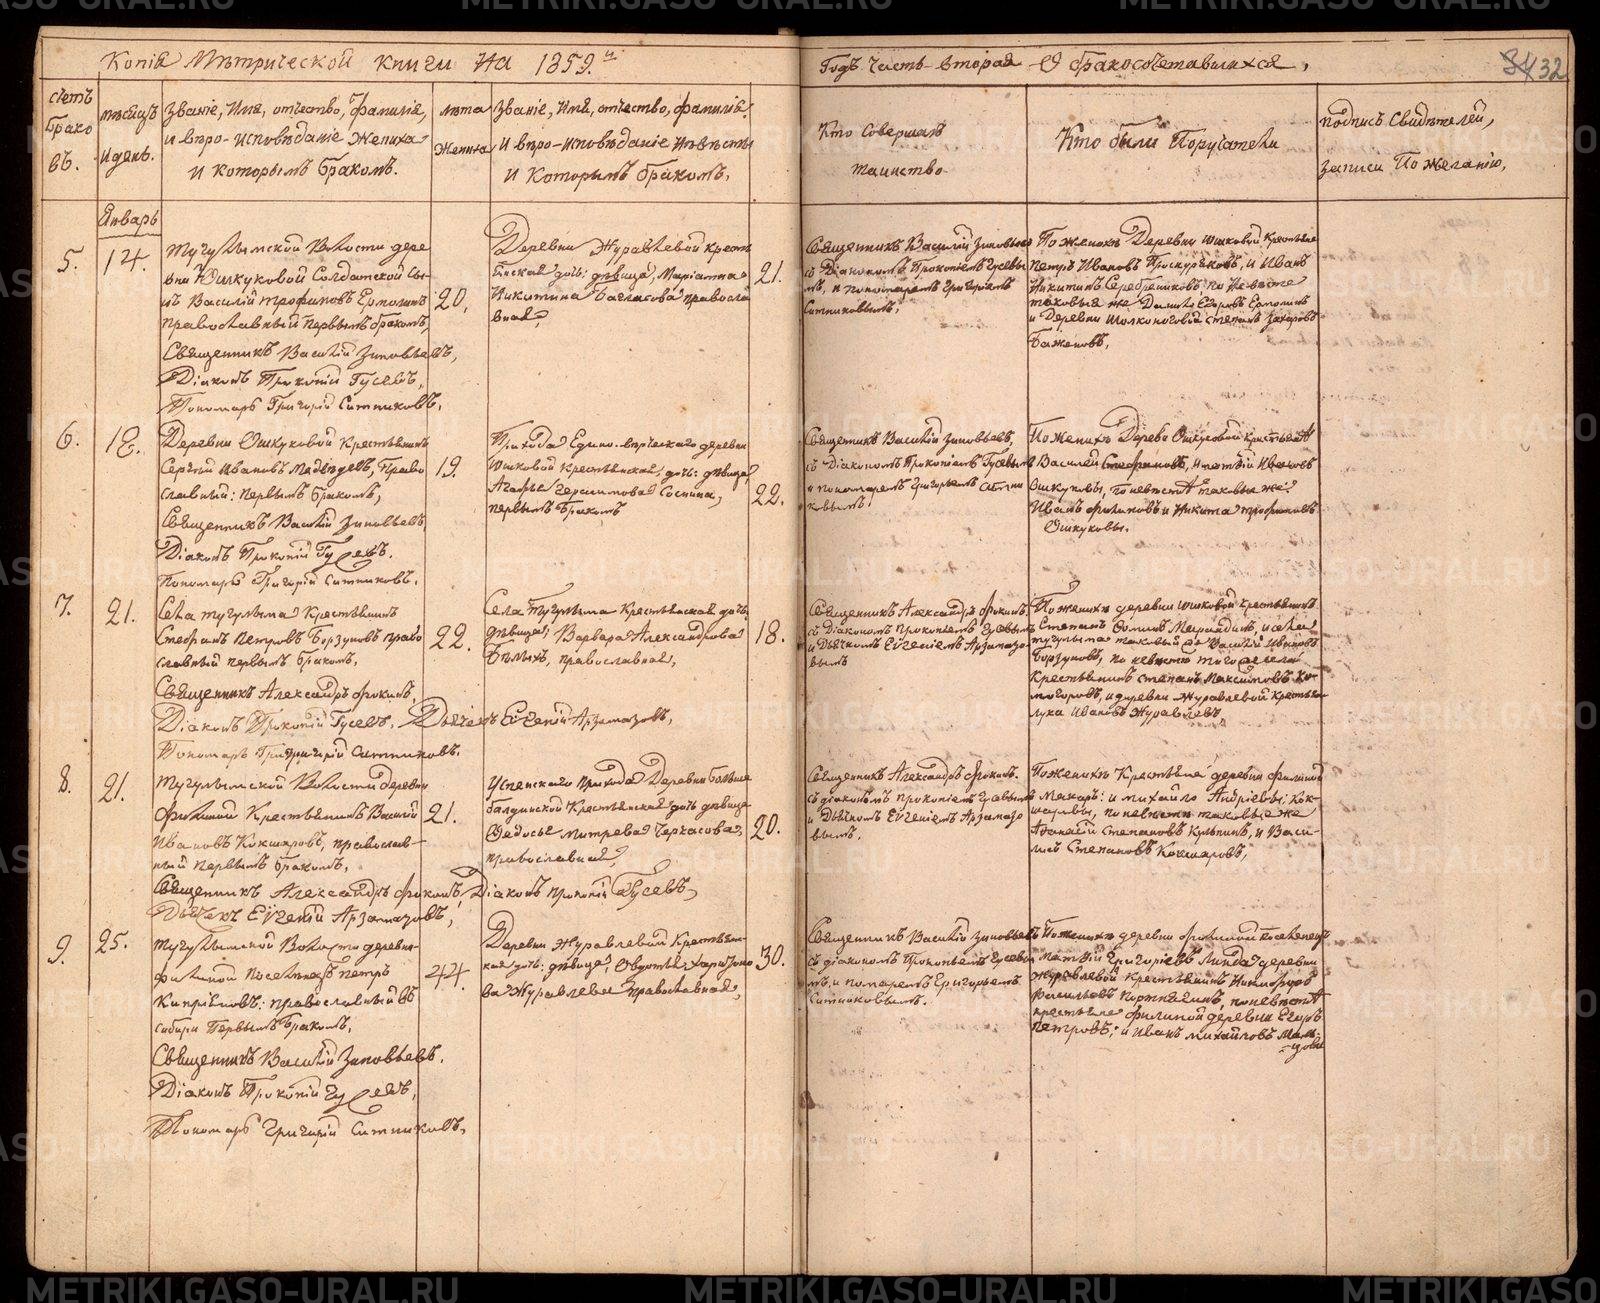 Копія Мѣтрической книги На 1859.й
Годъ Часть вторая О бракосочетавшихся,
32
счетъ
брако
въ.
мѣсяцъ
и день.
Званіе, Имя, отчество, фамилія,
и вѣро-исповѣданіе Жениха
и которымъ бракомъ.
лѣта
Жениха
Званіе, Имя, отчество, фамилія
и вѣро-исповѣданіе Невѣсты
и Которымъ бракомъ,
Кто Совершалъ
таинство
Кто были Поручатели
подпись Свидѣтелей,
записи По желанію,
Январь
5.
14.
Тугулымской Волости дере
вни Юшкуковой Солдатской Сы
нъ Василій Трофимовъ Ермолинъ
православный первымъ бракомъ,
Священникъ Василій Зиновьевъ,
Діаконъ Прокопій Гусевъ,
Пономарь Григорій Ситниковъ,
20,
Деревни Журавлевой крест
янская дочь: дѣвица, Маріанна
Никитина православ
ная,
21.
Священникъ Василій Зиновьевъ
съ Діакономъ Прокопіемъ Гусевы
мъ, и пономаремъ Григорьемъ
Ситниковымъ,
По женихѣ Деревни Юшковой Крестьяне
Петръ Ивановъ Проскуряковъ, и Иванъ
Никитинъ Серебренниковъ по Невѣстѣ
таковые же Данило Егоровъ Ермолинъ
и Деревни Степанъ Захаровъ
Баженовъ,
6.
18.
Деревни Ошкуковой Крестьянинъ
Сергій Ивановъ Медвѣдевъ, Право
славный: первымъ бракомъ,
Священникъ Василій Зиновьевъ,
Діаконъ Прокопій Гусевъ.
Пономарь Григорій Ситниковъ.
19.
Прихода Едино-вѣрческаго деревни
Юшковой Крестьянская дочь: дѣвица,
Агафья Герасимова Соснина,
первымъ бракомъ
22.
Священникъ Василій Зиновьевъ,
съ Діакономъ Прокопіемъ Гусевымъ
и пономаремъ Григорьемъ Ситни
ковымъ.
По женихѣ Дерев. Ошкуковой крестьяне
Василей Стефановъ, и Ивановъ
Ошкуковы, по невѣстѣ таковые же:
Иванъ Филиповъ и Никита Трофимовъ
Ошкуковы.
7.
21.
Села Тугулыма Крестьянинъ
Стефанъ Петровъ Борзуновъ право
славный первымъ бракомъ,
Священникъ Александръ Фокинъ
Діаконъ Прокопій Гусевъ, Дьячекъ Евгеній Арзамазовъ,
Пономарь Григорій Ситниковъ.
22.
Села Тугулыма Крестьянская дочь
дѣвица, Варвара Александрова
Бѣлыхъ, православная,
18.
Священникъ Александръ Фокинъ,
съ Діакономъ Прокопіемъ Гусевымъ
и Дьячкомъ Евгеніемъ Арзамазо
вымъ
По женихѣ деревни Юшковой крестьянинъ
Степанъ и села
Тугулыма таковый же Василій Ивановъ
Борзуновъ, по невѣстѣ того же села
Крестьянинъ Степанъ Максимовъ Ко
могоровъ, и деревни Журавлевой крестьян
Лука Ивановъ Журавлевъ,
8.
21.
Тугулымской Волости деревни
Филиной Крестьянинъ Василій
Ивановъ Кокшаровъ, православ-
ный первымъ бракомъ.
Священникъ Александръ Фокинъ, Діаконъ прокопій Гусевъ,
Дьячекъ Евгеній Арзамазовъ,
21.
Успенскаго прихода Деревни Больше
балдинской Крестьянская дочь дѣвица
Ѳедосья Митрева Черкасова,
православная,
20.
Священникъ Александръ Фокинъ.
съ діакономъ прокопіемъ Гусевымъ
и Дьячкомъ Евгеніемъ Арзамазо
вымъ.
По женихѣ Крестьяне деревни Филиной
Макаръ: и Михайло Андріевы Кок-
шаровы, по невѣстѣ таковые же
Афанасій Степановъ Кулпинъ, и Васи-
лій Степановъ Кокшаровъ,
9.
25.
Тугулымской Волости деревни
Филиной Поселенецъ Петръ
Капріяновъ: православный въ
Сибири Первымъ бракомъ,
Священникъ Василій Зиновьевъ.
Діаконъ Прокопій Гусевъ,
Пономарь Григорій Ситниковъ,
44.
Деревни Журавлевой Крестьян-
ская дочь: дѣвица, Овдотья Харитоно
ва Журавлева православная,
30.
Священникъ Василій Зиновьевъ
съ діакономъ Прокопьемъ Гусевы
мъ, и пономаремъ Григорьемъ
Ситниковымъ.
По женихѣ деревни Филиной поселенецъ
Матвій Григоріевъ Линда деревни
Журавлевой крестьянинъ Никифоръ
Васильевъ Портнягинъ, по невѣстѣ
крестьяне Филиной деревни Егоръ
Петровъ; и Иванъ Михайловъ